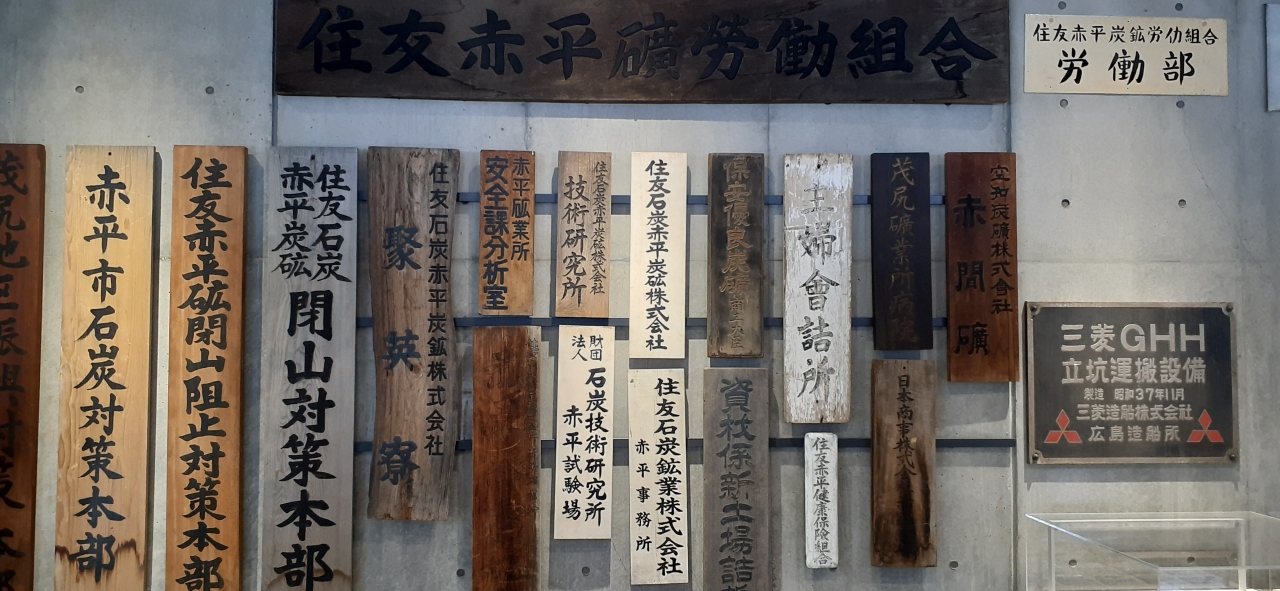 住友赤平礦勞働組合
住友赤平炭鉱労仂組合
労働部
赤平市石炭対策本部
住友赤平砿閉山阻止対策本部
住友石炭
赤平炭砿
閉山対策本部
住友石炭赤平炭鉱株式会社
聚英寮
赤平砿業所
安全課分析室
住友石炭赤平炭砿株式会社
技術研究所
住友石炭赤平炭砿株式会社
保安優良炭礦
主婦會詰所
茂尻礦業所
空知炭礦株式会社
赤間礦
財団
法人
石炭技術研究所
赤平試験場
住友石炭鉱業株式会社
赤平事務所
資材係新土場詰
住友赤平健康保険組合
日本商事株式
三菱GHH
立坑運搬設備
製造 昭和37年11月
三菱造船株式会社
広島造船所